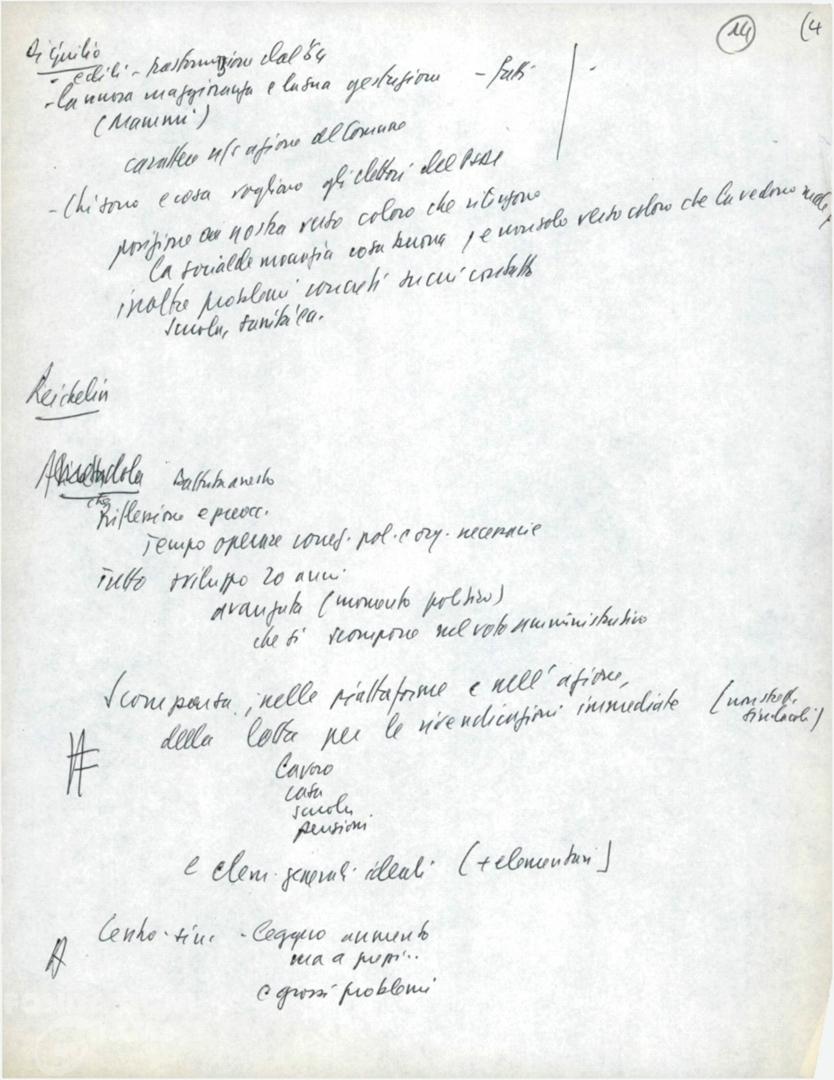 14 (4
Di Giulio
- edili - trasformazione dal 64
- la nuova maggioranza e la sua gestazione - fatti -
(Mammì)
carattere azione al Comune
- Chi sono e cosa vogliono gli elettori del
posizione nostra verso coloro che ritengono
la socialdemocrazia cosa buona, e non solo verso coloro che la vedono male,
inoltre problemi concreti su cui
scuola, sanità ca.
Reichelin
riflessione e preocc.
Tempo operare conseg. pol. e org. necessarie
Tutto sviluppo 20 anni
avanzata (momento politico)
che si scompone nel voto amministrativo
Scomparsa, nelle piattaforme e nell'azione,
della lotta per le rivendicazioni immediate (non strett. sindacali)
lavoro
casa
scuola
pensioni
e elem. generali ideali (+ elementari)
Centro-sin. - leggero aumento
ma a
e grossi problemi